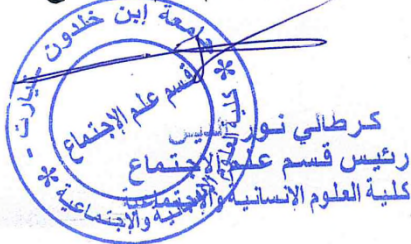 جامعة إبن خلدون - تيارت -
كلية العلوم الإنسانية والإجتماعية
قسم علم الإجتماع
كرطالي نور
رئيس قسم علم الإجتماع
كلية العلوم الإنسانية والإجتماعية